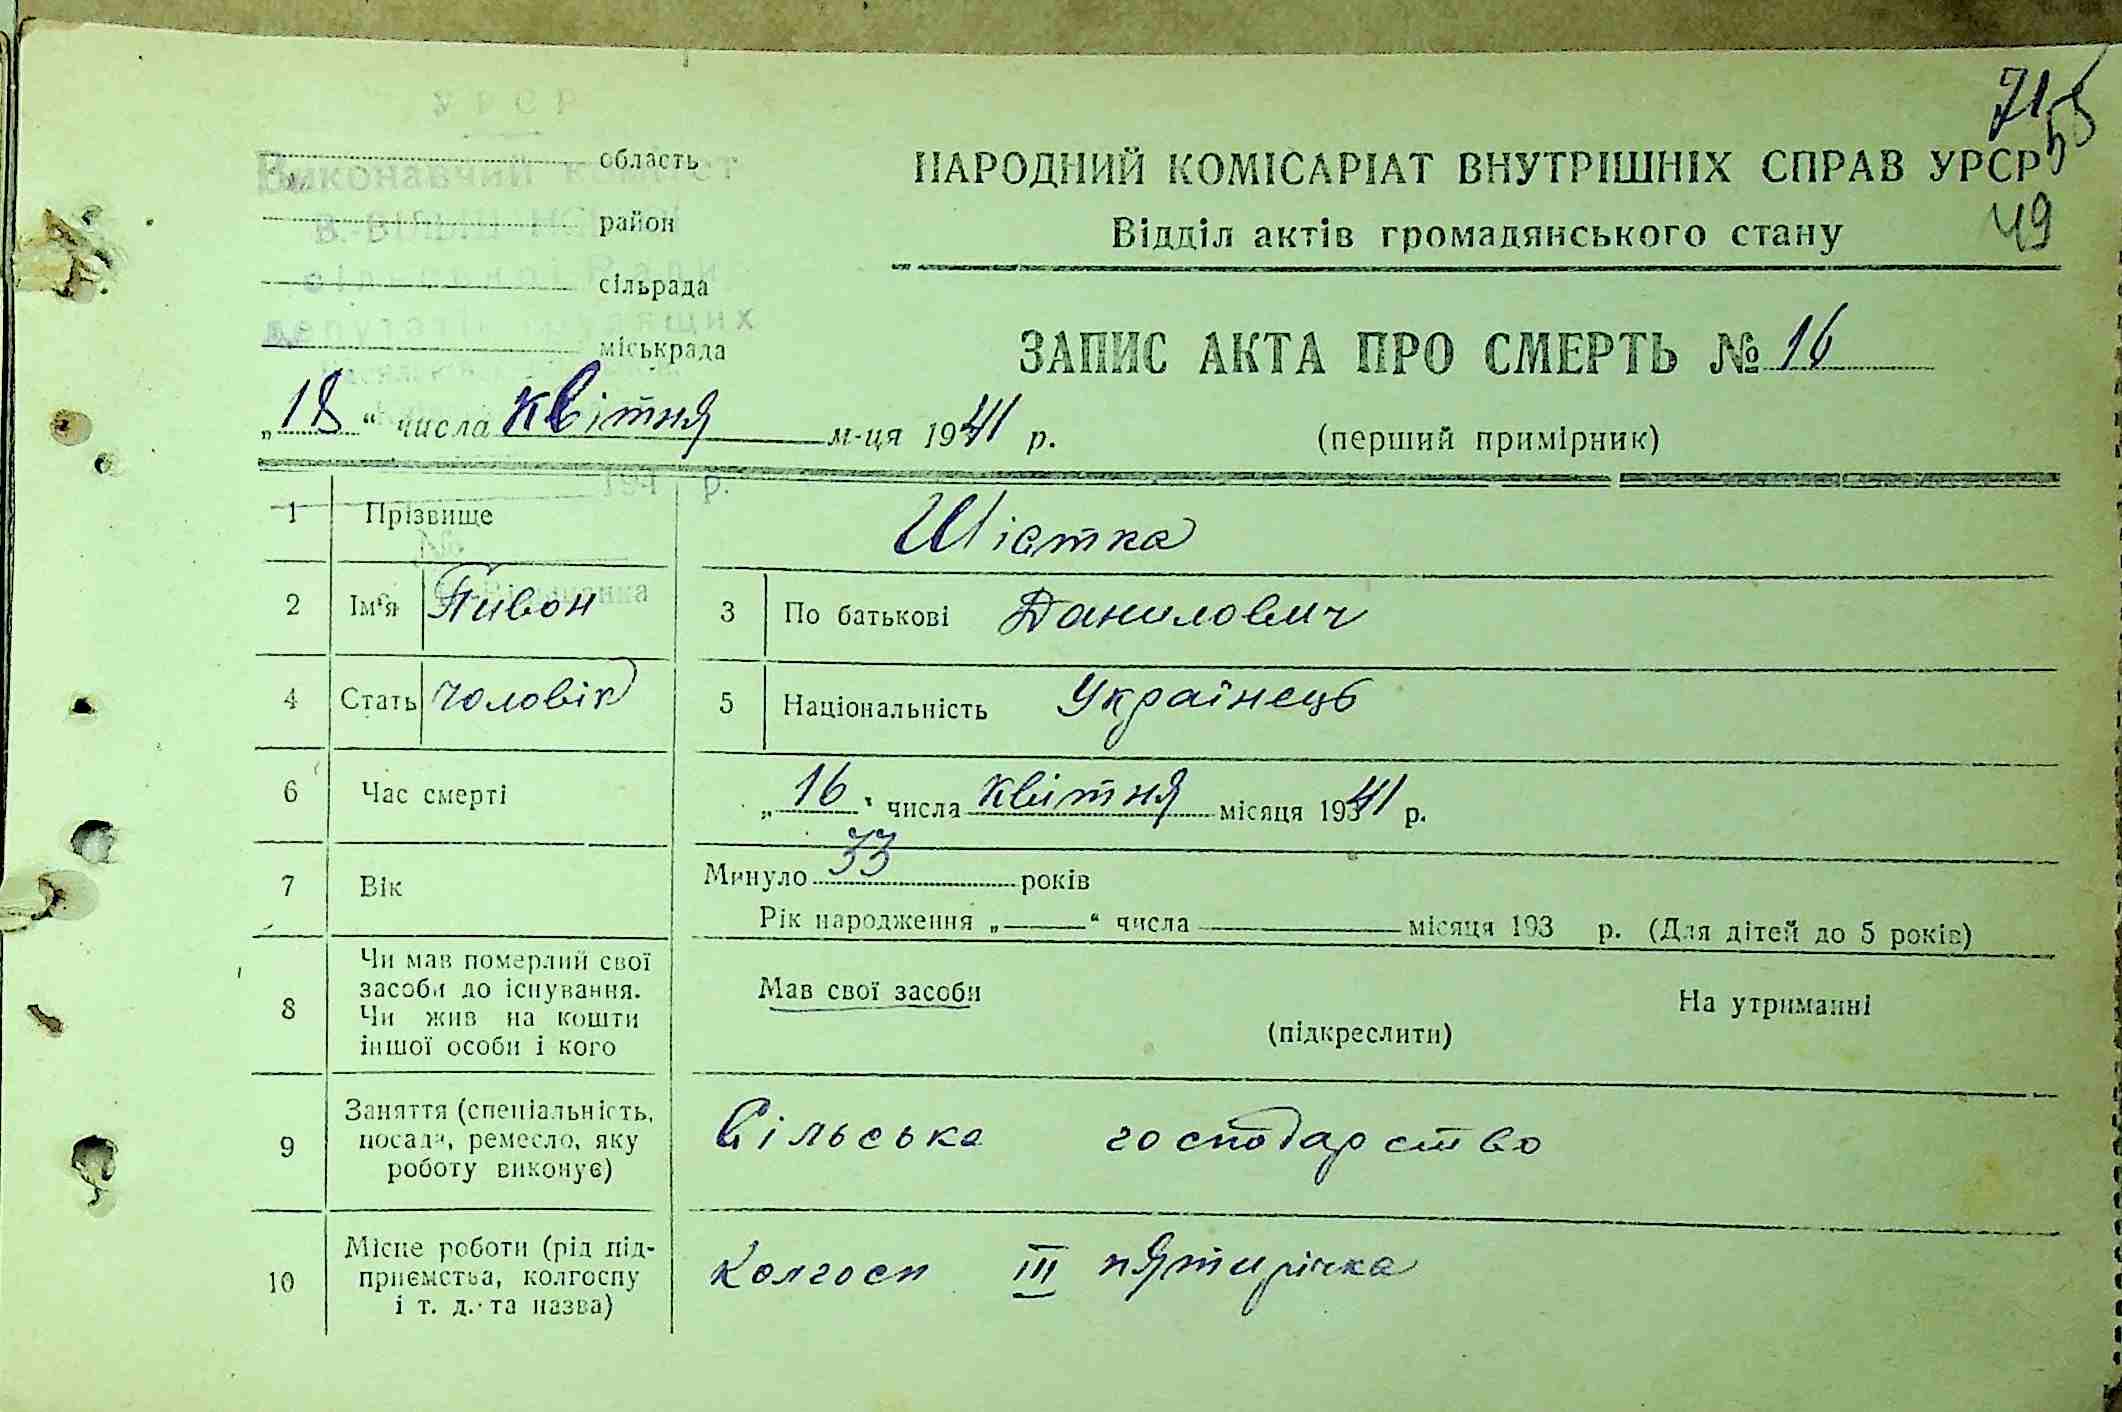 71
55
49
УРСР
Виконавчий комітет
область
район
сільської Ради
сільрада
депутатів трудящих
міськрада
НАРОДНИЙ КОМІСАРІАТ ВНУТРІШНІХ СПРАВ УРСР
Відділ актів громадянського стану
ЗАПИС АКТА ПРО СМЕРТЬ № 16
(перший примірник)
„18“ числа квітня м-ця 1941 р.
194 р.
1 Прізвище Шістка
№
2 Ім'я Пивон 3 По батькові Данилович
4 Стать чоловік 5 Національність Українець
6 Час смерті „16“ числа квітня місяця 1941 р.
7 Вік Минуло 33 років
Рік народження „ “ числа місяця 193 р. (Для дітей до 5 років)
8 Чи мав померлий свої
засоби до існування.
Чи жив на кошти
іншої особи і кого
Мав свої засоби На утриманні
(підкреслити)
9 Заняття (спеціальність,
посада, ремесло, яку
роботу виконує)
Сільське господарство
10 Місце роботи (рід під-
приємства, колгоспу
і т. д. та назва)
Колгосп ІІІ пятирічка